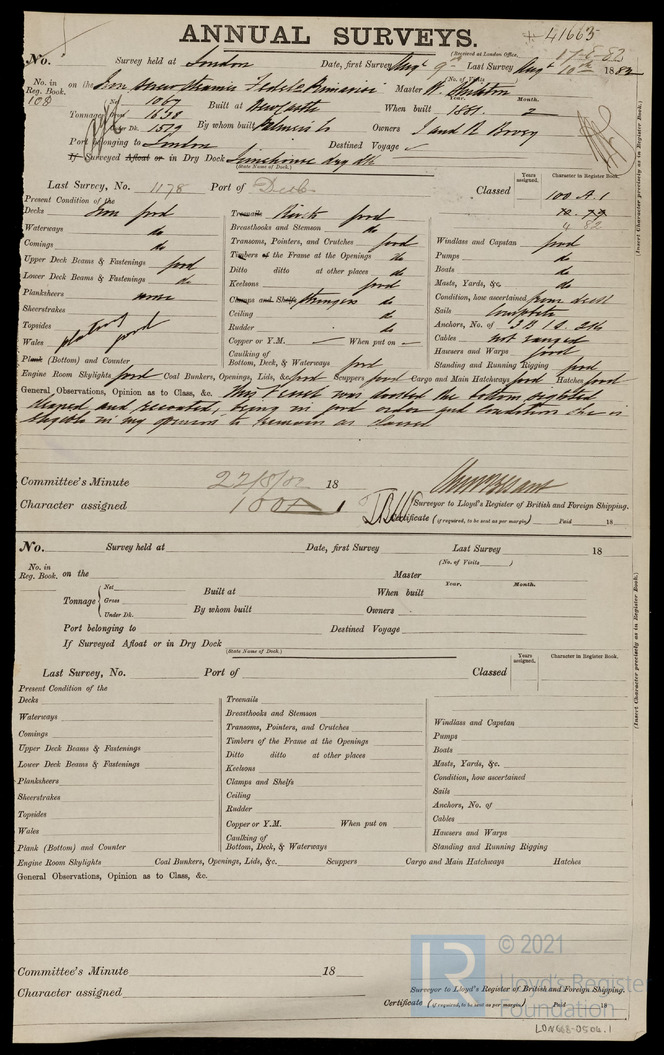 ANNUAL SURVEYS.
41663
(Received at London Office, 17-8-82
No. Survey held at London Date, first Survey Augt 9th Last Survey Augt 10th 1882
(No. of Visits)
No. in Reg. Book. on the Iron screw steamer Fedele Primavesi Master W.
108
Tonnage Net 1067 Built at Newcastle When built Year. 1881. Month. 2
Gross 1638
Under Dk. 1579 By whom built Palmers Co Owners
Port belonging to London Destined Voyage
If Surveyed Afloat or in Dry Dock Limehouse dry dk
(State Name of Dock.)
Last Survey, No. 1178 Port of Classed
Years assigned. Character in Register Book.
100 A.1
4 82
(Insert Character precisely as in Register Book.)
Present Condition of the
Decks Iron good
Waterways do
Comings do
Upper Deck Beams & Fastenings good
Lower Deck Beams & Fastenings do
Planksheers none
Sheerstrakes
Topsides
Wales plating good
Plank (Bottom) and Counter
Treenails Rivets good
Breasthooks and Stemson do
Transoms, Pointers, and Crutches good
Timbers of the Frame at the Openings do
Ditto ditto at other places do
Keelsons good
Clamps and Shelfs Stringers do
Ceiling do
Rudder do
Copper or Y.M. When put on
Caulking of
Bottom, Deck, & Waterways good
Windlass and Capstan good
Pumps do
Boats do
Masts, Yards, &c. do
Condition, how ascertained from deck
Sails complete
Anchors, No. of 3 B 1 S. 2K
Cables not ranged
Hawsers and Warps good
Standing and Running Rigging good
Engine Room Skylights good Coal Bunkers, Openings, Lids, &c. good Scuppers good Cargo and Main Hatchways good Hatches good
General Observations, Opinion as to Class, &c. This vessel was docked the bottom sighted
scraped and recoated, being in good order and condition she is
eligible in my opinion to remain as classed
Committee's Minute 22/8/82 18
Character assigned 100A1
Surveyor to Lloyd's Register of British and Foreign Shipping.
Certificate (if required, to be sent as per margin) Paid 18
No. Survey held at Date, first Survey Last Survey 18
(No. of Visits )
No. in Reg. Book. on the Master
Tonnage Net Built at When built Year. Month.
Gross
Under Dk. By whom built Owners
Port belonging to Destined Voyage
If Surveyed Afloat or in Dry Dock
(State Name of Dock.)
Last Survey, No. Port of Classed
Years assigned. Character in Register Book.
(Insert Character precisely as in Register Book.)
Present Condition of the
Decks
Waterways
Comings
Upper Deck Beams & Fastenings
Lower Deck Beams & Fastenings
Planksheers
Sheerstrakes
Topsides
Wales
Plank (Bottom) and Counter
Treenails
Breasthooks and Stemson
Transoms, Pointers, and Crutches
Timbers of the Frame at the Openings
Ditto ditto at other places
Keelsons
Clamps and Shelfs
Ceiling
Rudder
Copper or Y.M. When put on
Caulking of
Bottom, Deck, & Waterways
Windlass and Capstan
Pumps
Boats
Masts, Yards, &c.
Condition, how ascertained
Sails
Anchors, No. of
Cables
Hawsers and Warps
Standing and Running Rigging
Engine Room Skylights Coal Bunkers, Openings, Lids, &c. Scuppers Cargo and Main Hatchways Hatches
General Observations, Opinion as to Class, &c.
Committee's Minute 18
Character assigned
Surveyor to Lloyd's Register of British and Foreign Shipping.
Certificate (if required, to be sent as per margin) Paid 18
LR © 2021
Lloyd's Register
Foundation
LON668-0506.1